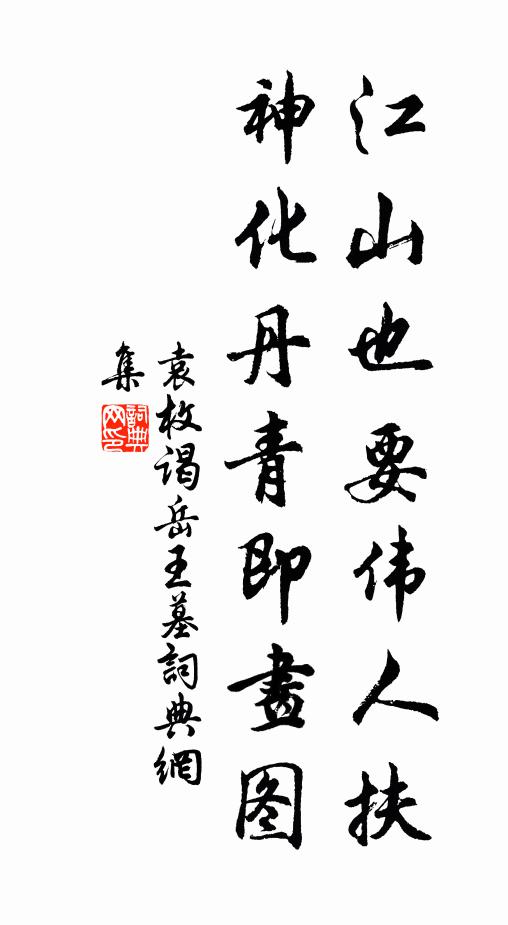 江山也要伟人扶
神化丹青即畫图
袁枚谒岳王墓詞典網
集
詞典
网印